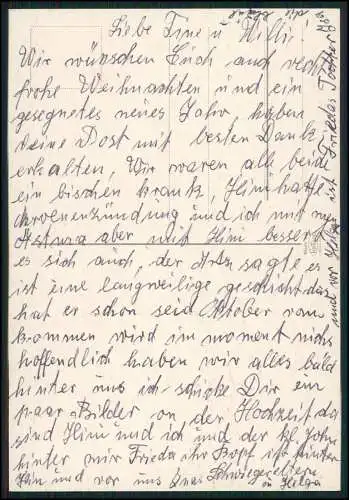 Liebe Tine u Willi!
Wir wünschen Euch auch recht
frohe Weihnachten und ein
gesegnetes neues Jahr haben
deine Post mit besten Dank
erhalten, Wir waren alle beide
ein bischen krank, Heini hatte
und ich mit
Astma aber mit Heini bessert
es sich auch, der Arzt sagte es
ist eine langweilige geschicht das
hat er schon seid Oktober vom
kommen wird im moment nichs
hoffendlich haben wir alles bald
hinter uns ich schicke Dir ein
paar Bilder on der Hochzeit da
sind Heini und ich und der kl. John
hinter mir Frieda ihr hinter
Heini und vor uns Schwiegereltern
u Helga
und vor Helga ist Friedas Tochter